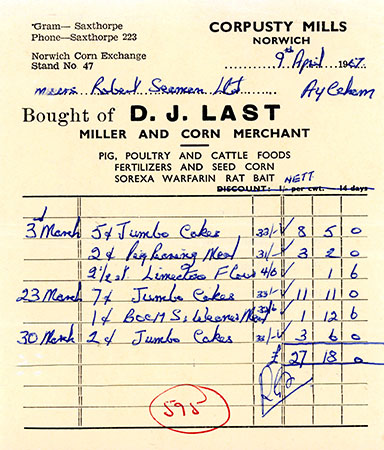 'Gram— Saxthorpe
Phone—Saxthorpe 223
CORPUSTY MILLS
NORWICH
Norwich Corn Exchange
Stand No 47
9th April 1967.
Messrs Robert Seaman Ltd Aylsham
Bought of D. J. LAST
MILLER AND CORN MERCHANT
PIG, POULTRY AND CATTLE FOODS
FERTILIZERS AND SEED CORN
SOREXA WARFARIN RAT BAIT NETT
DISCOUNT: 1/- per cwt. 14 days
3 March 5 c Jumbo Cakes 33/- 8 5 0
2 c Pig Rearing Meal 31/- 3 2 0
Flour 4/6 1 6
23 March 7 c Jumbo Cakes 33/- 11 11 0
1 c BOCM Weaner Meal 32/6 1 12 6
30 March 2 c Jumbo Cakes 33/- 3 6 0
£ 27 18 0
595